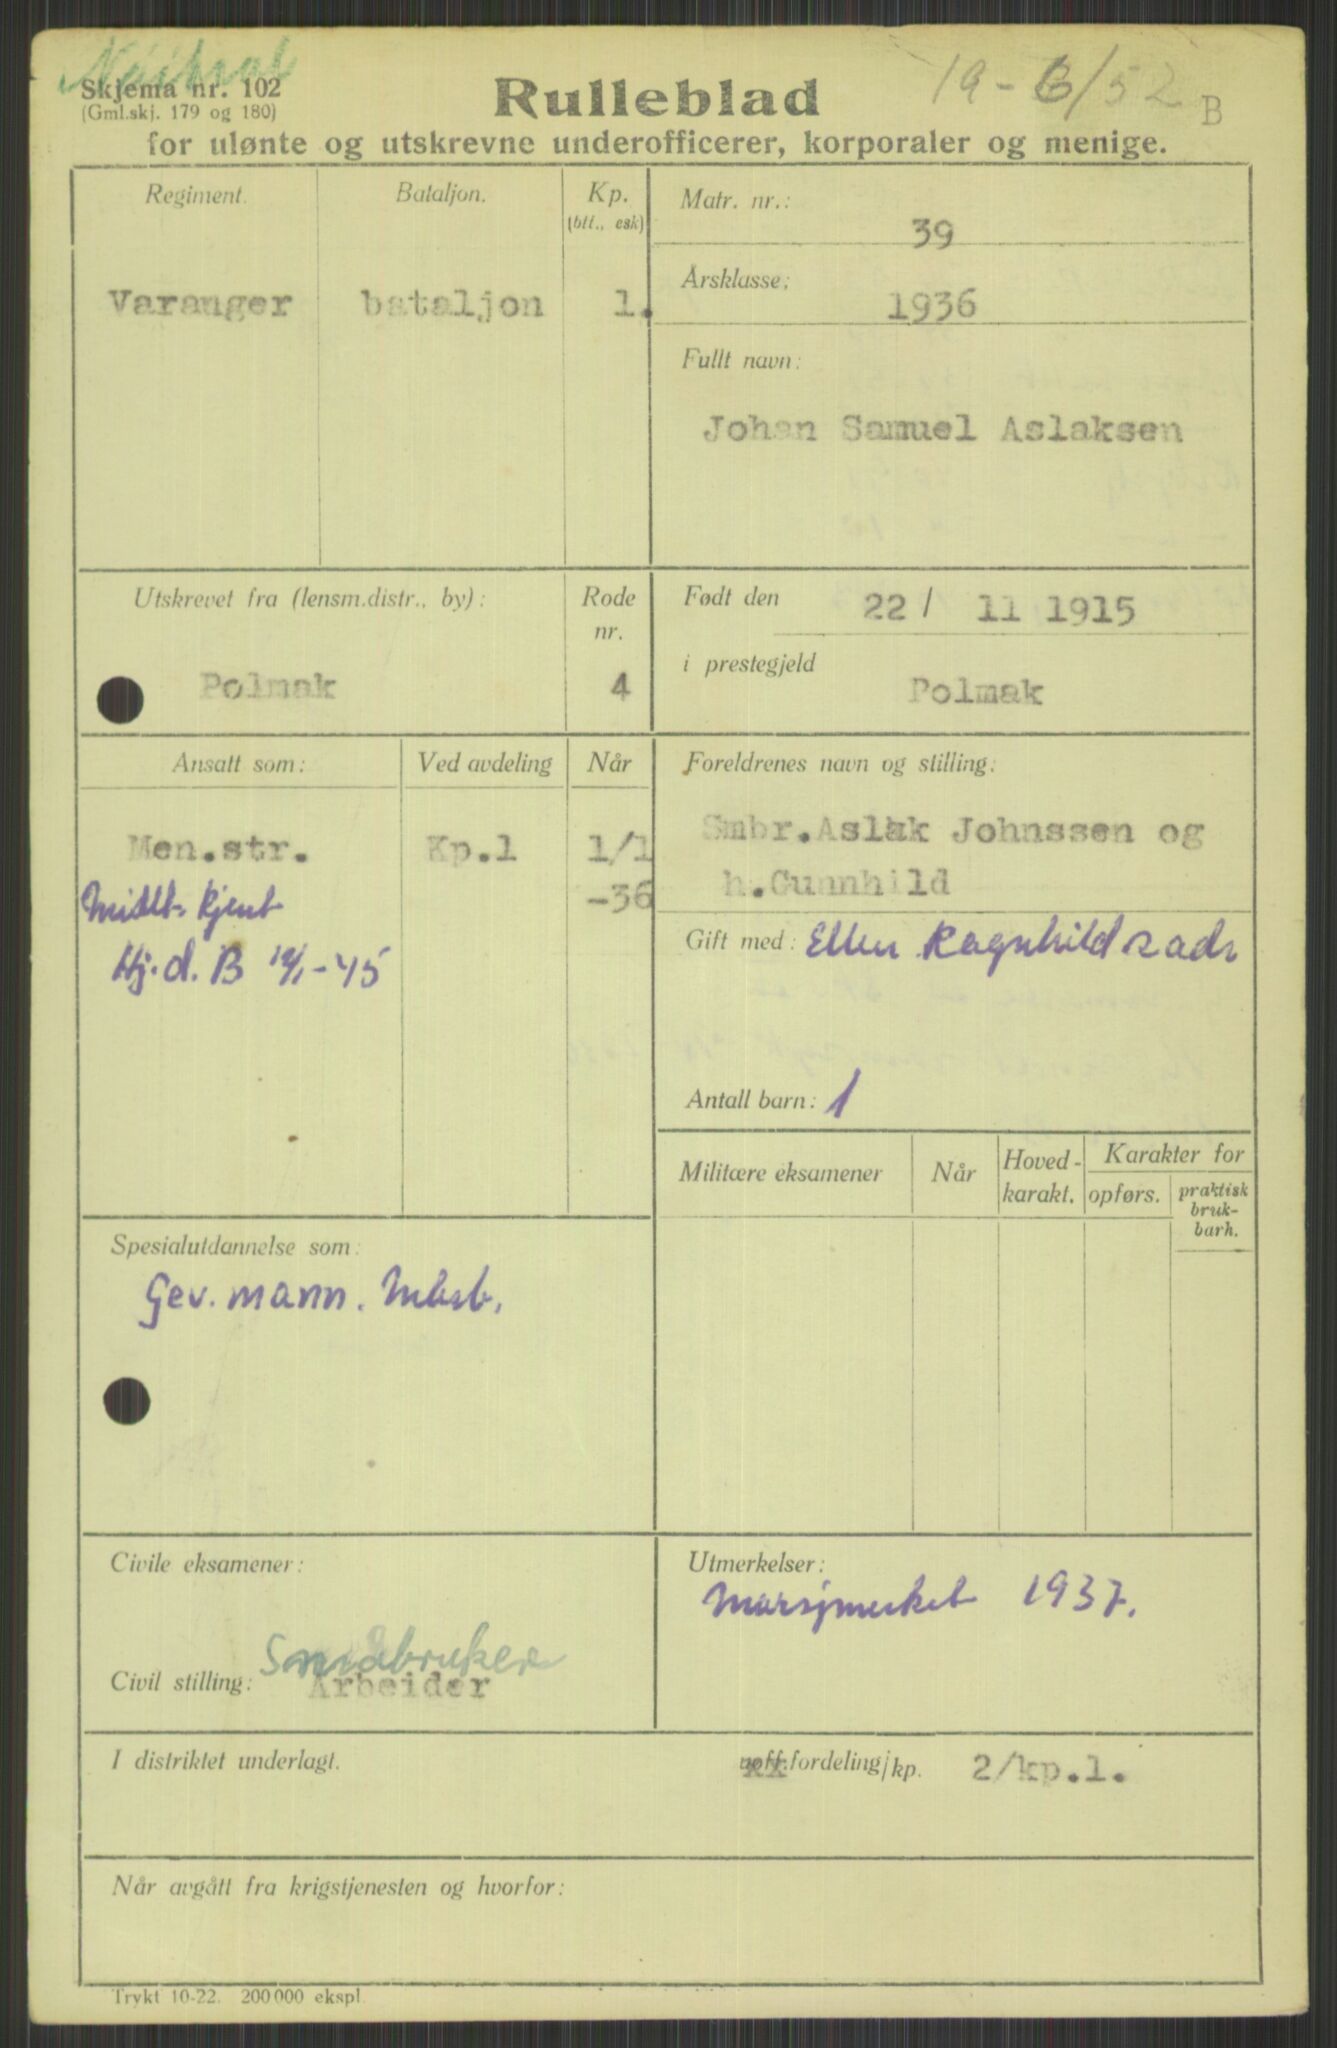 Skjema nr. 102
(Gml.skj. 179 og 180)
Rulleblad
19-6/52 B
for ulønte og utskrevne underofficerer, korporaler og menige.
Regiment. Bataljon. Kp. (btt., esk)
Varanger bataljon 1.
Matr. nr.: 39
Årsklasse: 1936
Fullt navn:
Johan Samuel Aslaksen
Utskrevet fra (lensm.distr., by): Rode nr.
Polmak 4
Født den 22/ 11 1915
i prestegjeld Polmak
Ansatt som: Ved avdeling Når
Men.str. Kp.1 1/1
-36
Midlt. kjent
Hj.d. B -45
Foreldrenes navn og stilling:
Smbr.Aslak Johnssen og
h.Gunnhild
Gift med: Ellen Ragnhild
Antall barn: 1
Militære eksamener Når Hoved-karakt. Karakter for
opførs. praktisk bruk-barh.
Spesialutdannelse som:
Gev.mann.
Civile eksamener:
Småbruker
Civil stilling: Arbeider
Utmerkelser:
Marsjmerket 1937.
I distriktet underlagt. uoff.fordeling/kp. 2/kp.1.
Når avgått fra krigstjenesten og hvorfor:
Trykt 10-22. 200 000 ekspl.